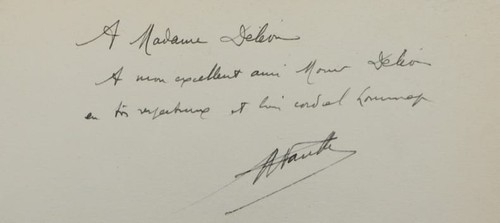 A Madame Deléon
A mon excellent ami Monsr Deléon
en très respectueux et bien cordial hommage